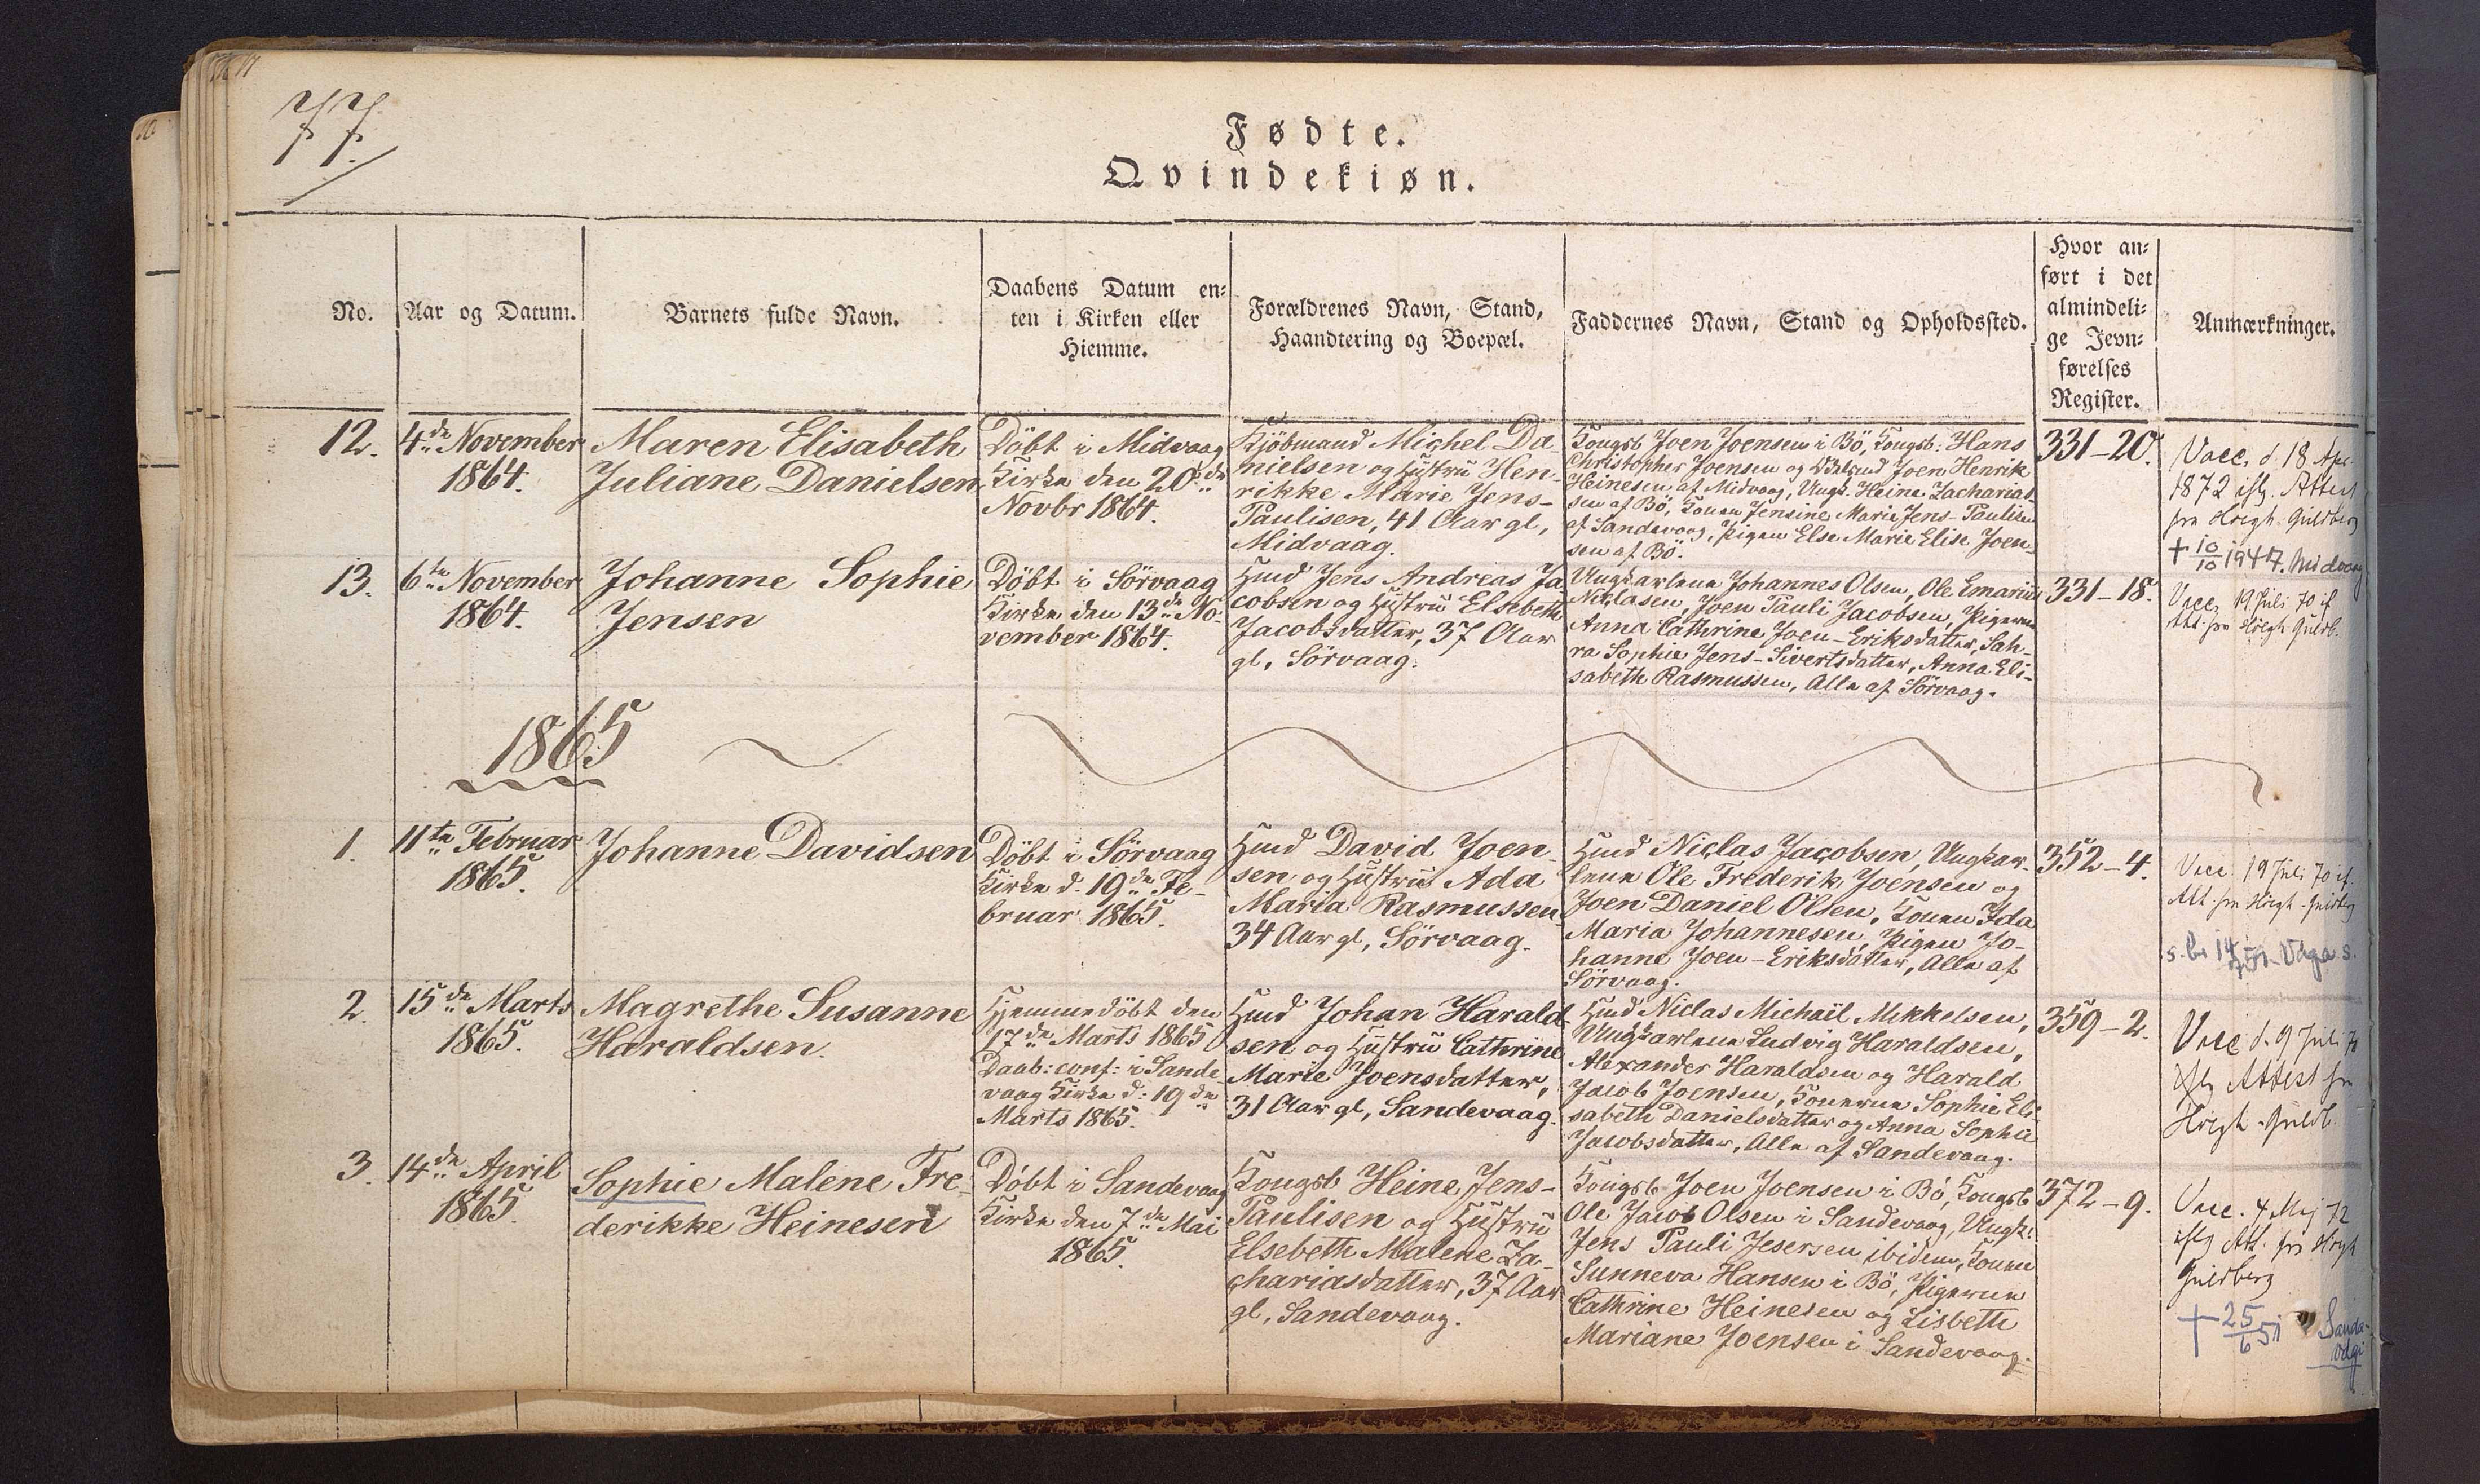 77.
Fødte.
Qvindekiøn.
No.
Aar og Datum.
Barnets fulde Navn.
Daabens Datum en-
ten i Kirken eller
Hiemme.
Forældrenes Navn, Stand,
Haandtering og Boepæl.
Faddernes Navn, Stand og Opholdssted.
Hvor an-
ført i det
almindeli-
ge Jevn-
førelses
Register.
Anmærkninger.
12.
4de November
1864.
Maren Elisabeth
Juliane Danielsen
Döbt i Midvaag
Kirke den 20de
Novbr 1864.
Kjöbmand Michel Da-
nielsen og Hustru Hen-
rikke Marie Jens-
Paulisen, 41 Aar gl,
Midvaag.
Kongsb Joen Joensen i Bö, Kongsb: Hans
Christopher Joensen og Joen Henrik
Heinesen af Midvaag, Ungk. Heine Zacharias-
sen af Bö, Konen Jensine Marie Jens-Paulisen
af Sandevaag, Pigen Else Marie Elise Joen-
sen af Bö.
331-20.
Vacc. d. 18 Apr.
1872 iflg. Attest
fra Höegh-Guldberg
+ 10/10 1947. Midvaag
13.
6te November
1864.
Johanne Sophie
Jensen
Döbt i Sörvaag
Kirke den 13de No-
vember 1864.
Hmd Jens Andreas Ja-
cobsen og Hustru Elsebeth
Jacobsdatter, 37 Aar
gl, Sörvaag.
Ungkarlene Johannes Olsen, Ole Emarius
Niclasen, Joen Pauli Jacobsen, Pigerne
Anna Cathrine Joen-Eriksdatter, Sah-
ra Sophie Jens-Sivertsdatter, Anna Eli-
sabeth Rasmussen, Alle af Sörvaag.
331-18.
Vacc. 19 Juli 70 if
Att. fra Höegh Guldb.
1865
1.
11te Februar
1865.
Johanne Davidsen
Döbt i Sörvaag
Kirke d. 19de Fe-
bruar 1865.
Hmd David Joen-
sen og Hustru Ada
Maria Rasmussen
34 Aar gl, Sörvaag.
Hmd Niclas Jacobsen, Ungkar-
lene Ole Frederik Joensen og
Joen Daniel Olsen, Konen Ida
Maria Johannesen, Pigen Jo-
hanne Joen-Eriksdatter, Alle af
Sörvaag.
352-4.
Vacc. 19 Juli 70 if.
Att. fra Höegh-Guldberg
2.
15de Marts
1865.
Magrethe Susanne
Haraldsen.
Hjemmedöbt den
17de Marts 1865
Daab: conf: i Sande-
vaag Kirke d: 19de
Marts 1865.
Hmd Johan Harald-
sen og Hustru Cathrine
Marie Joensdatter,
31 Aar gl, Sandevaag.
Hmd Niclas Michaël Mikkelsen,
Ungkarlene Ludvig Haraldsen,
Alexander Haraldsen og Harald
Jacob Joensen, Konerne Sophie Eli-
sabeth Danielsdatter og Anna Sophie
Jacobsdatter, Alle af Sandevaag.
359-2.
Vacc d. 9 Juli 70
iflg Attest fra
Höegh-Guldb.
3.
14de April
1865.
Sophie Malene Fre-
derikke Heinesen
Döbt i Sandevaag
Kirke den 7de Mai
1865.
Kongsb Heine Jens-
Paulisen og Hustru
Elsebeth Malene Za-
chariasdatter, 37 Aar
gl, Sandevaag.
Kongsb Joen Joensen i Bö, Kongsb
Ole Jacob Olsen i Sandevaag, Ungk:
Jens Pauli Jesersen ibidem, Konen
Sunneva Hansen i Bö, Pigerne
Cathrine Heinesen og Lisbeth
Mariane Joensen i Sandevaag.
372-9.
Vacc. 4 Maj 72
iflg Att. fra Höegh
Guldberg
+ 25/6 51 Sanda-
vági